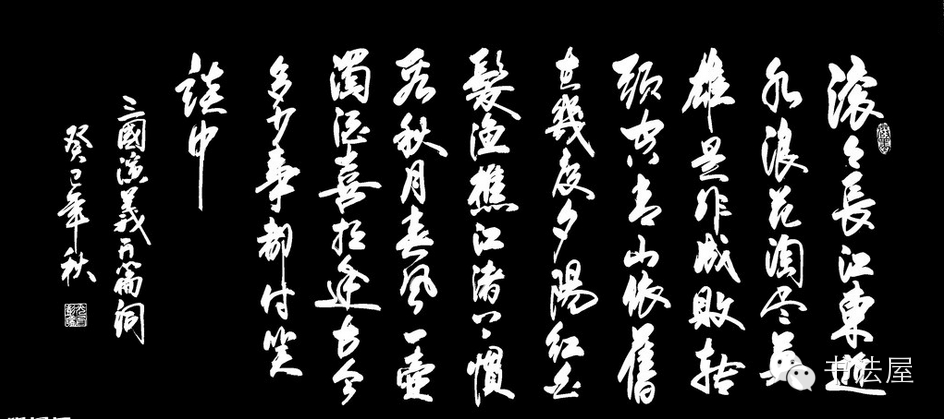 滚々長江東逝
水浪花淘尽英
雄是非成敗转
頭空青山依舊
在幾度夕陽红白
髮渔樵江渚上慣
看秋月春風一壶
濁酒喜相逢古今
多少事都付笑
談中
三國演義开篇词
癸巳年秋
书法屋